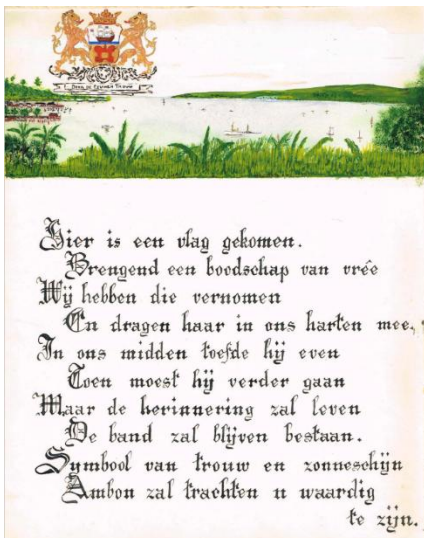 Hier is een vlag gekomen.
Brengend een boodschap van vrêe
Wij hebben die vernomen
En dragen haar in ons harten mee,
In ons midden toefde hij even
Toen moest hij verder gaan
Maar de herinnering zal leven
De band zal blijven bestaan.
Symbool van trouw en zonneschijn
Ambon zal trachten u waardig
te zijn.